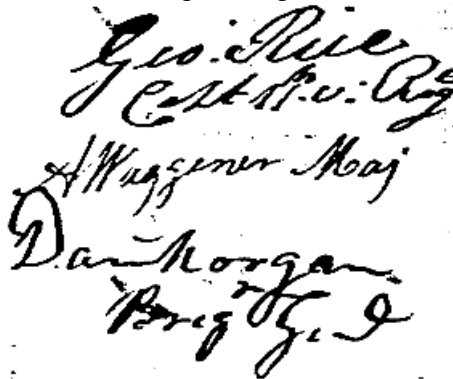 Geo. Rice
Capt. V. Reg
A Waggener Maj
Dan Morgan
Brigr Gel